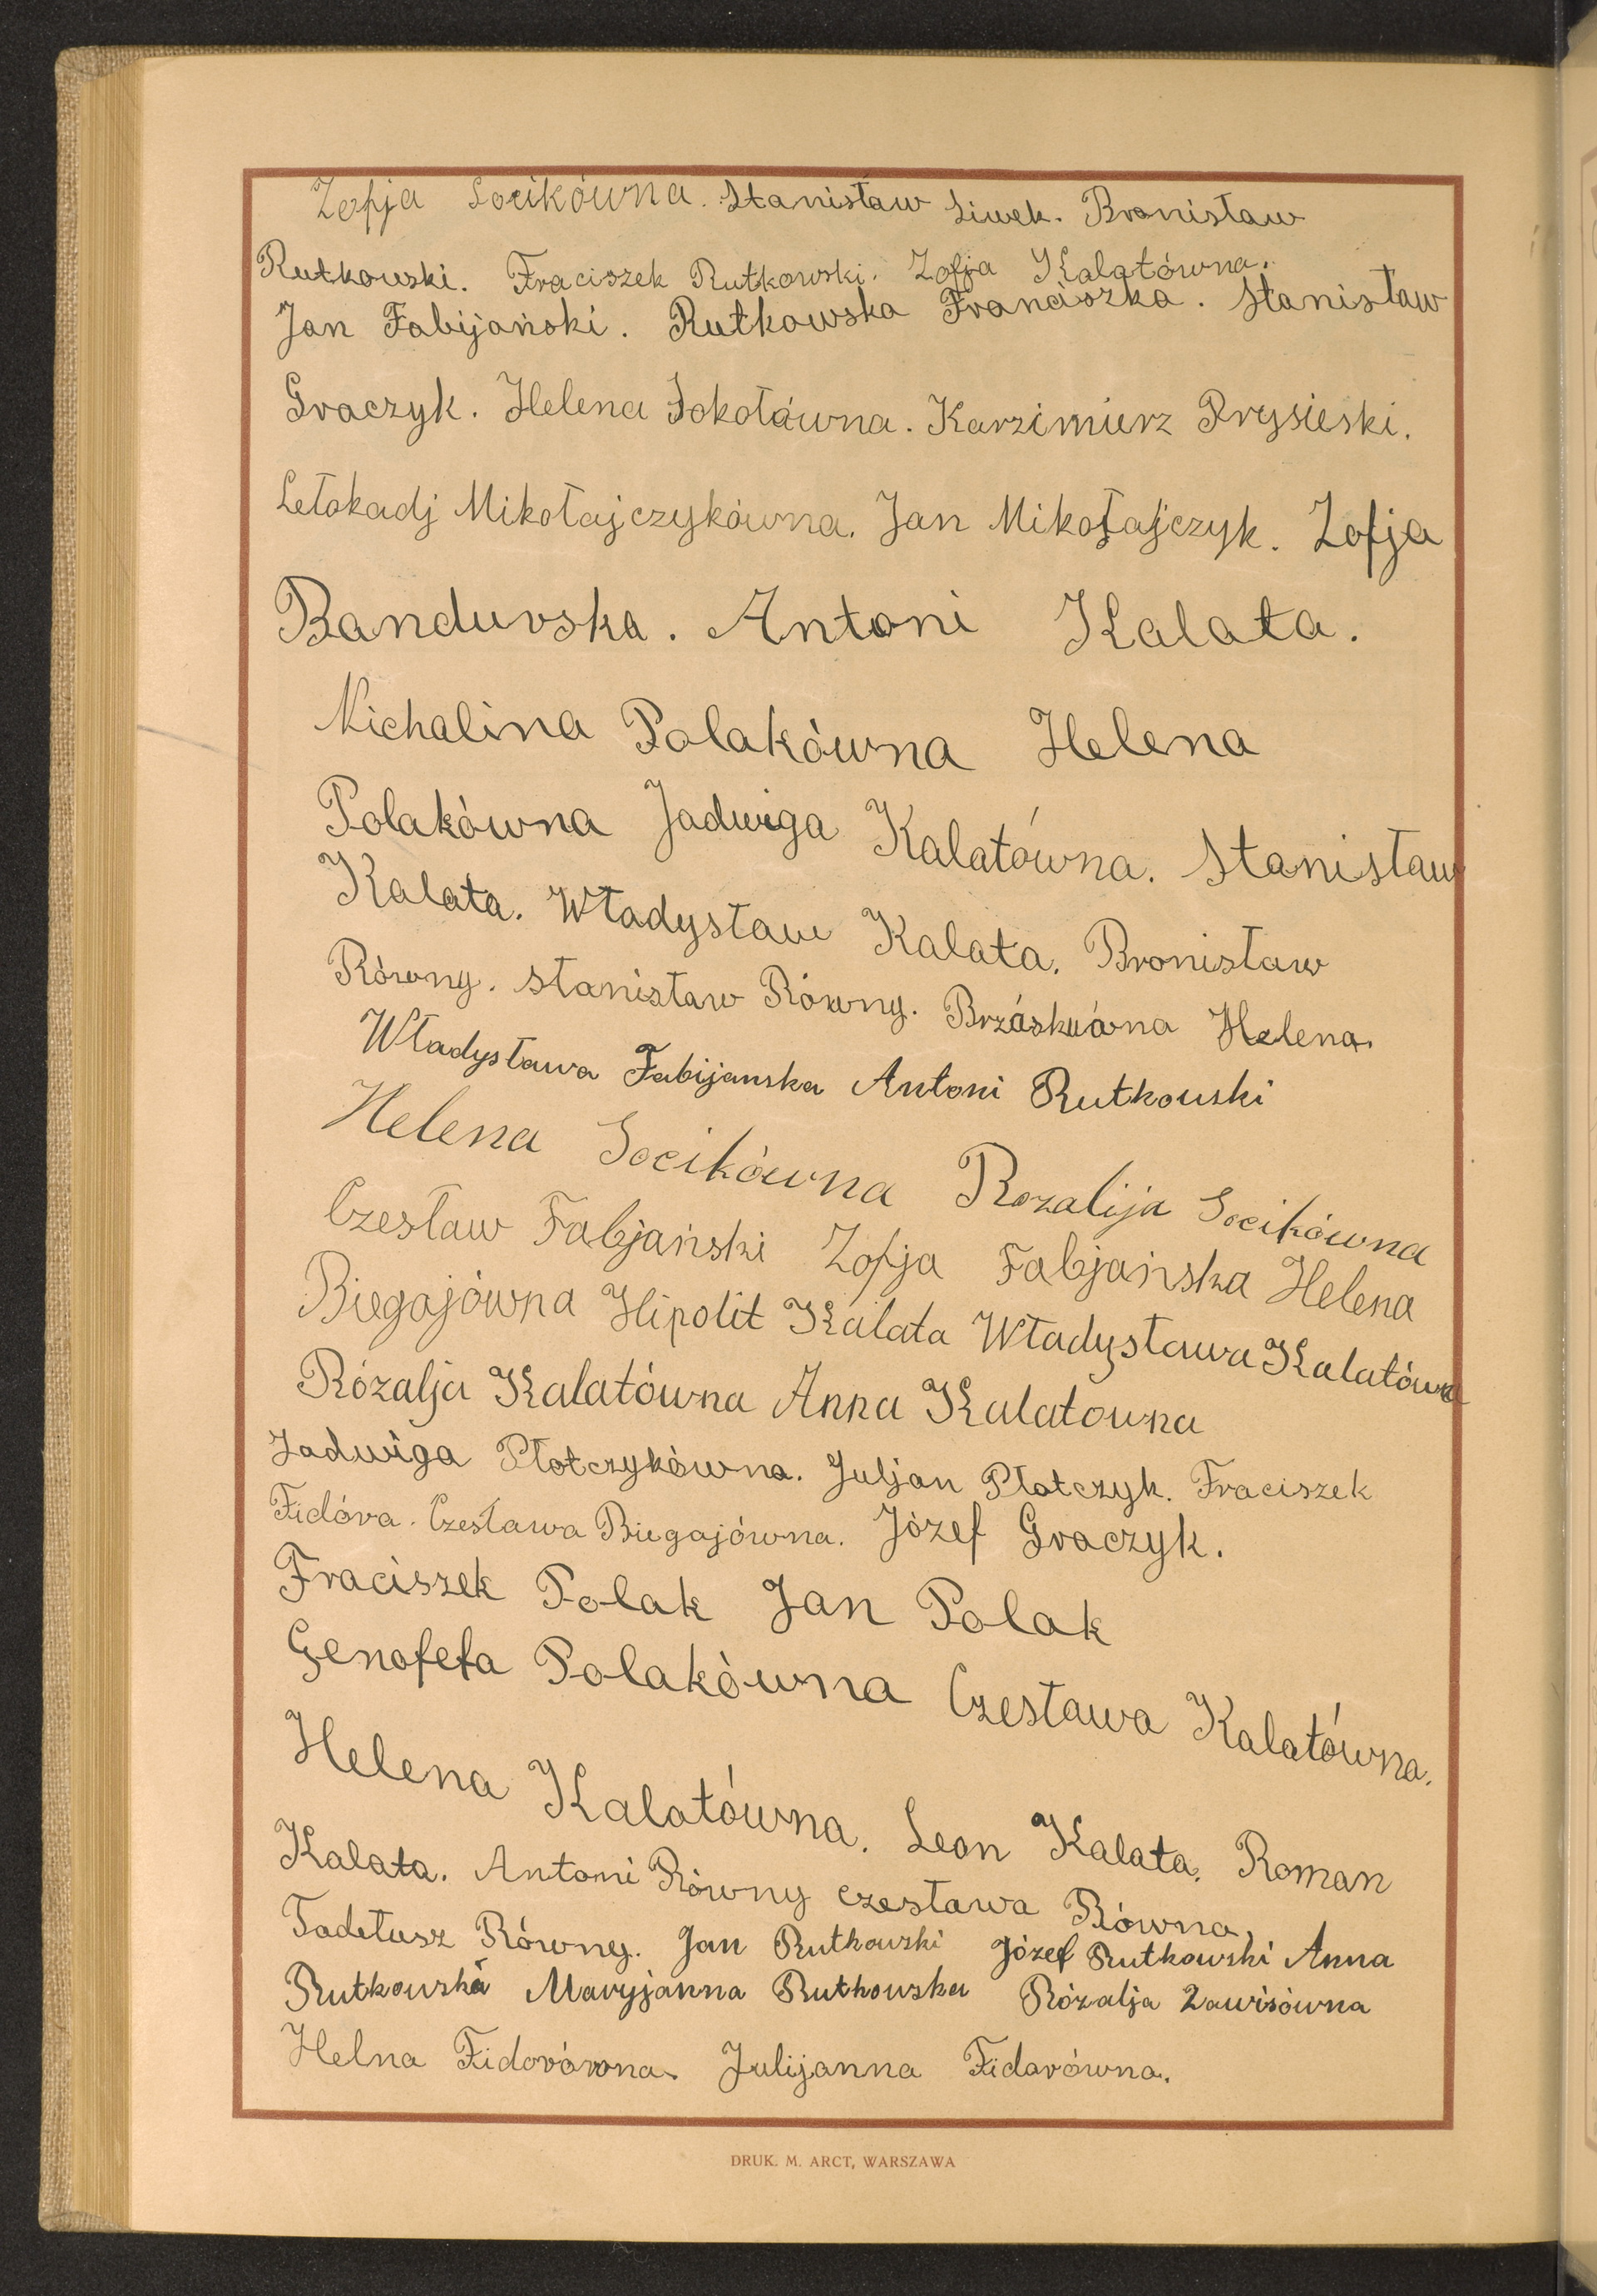 Zofja Socikówna. Stanisław Siwek. Bronisław
Rutkowski. Fraciszek Rutkowski. Zofja Kalatówna.
Jan Fabijański. Rutkowska Franciszka. Stanisław
Graczyk. Helena Sokołówna. Karzimierz Prysieski.
Letokadj Mikołajczykówna. Jan Mikołajczyk. Zofja
Bandurska. Antoni Kalata.
Michalina Polakówna Helena
Polakówna Jadwiga Kalatówna. Stanisław
Kalata. Władysław Kalata. Bronisław
Równy. Stanisław Równy. Helena.
Władysława Fabijanska Antoni Rutkowski
Helena Socikówna Rozalija Socikówna
Czesław Fabjański Zofja Fabjańska Helena
Biegajówna Hipolit Kalata Władysława Kalatówna
Rózalja Kalatówna Anna Kalatowna
Jadwiga Płotczykówna. Juljan Płotczyk. Fraciszek
Fidóra. Czesława Biegajówna. Józef Graczyk.
Fraciszek Polak Jan Polak
Genofefa Polakówna Czesława Kalatówna.
Helena Kalatówna. Leon Kalata. Roman
Kalata. Antoni Równy Czesława Równa.
Tadeusz Równy. Jan Rutkowski Józef Rutkowski Anna
Rutkowska Maryjanna Rutkowska Rózalja Zawisówna
Helna Fidorówna. Julijanna Fidorówna.
DRUK. M. ARCT, WARSZAWA